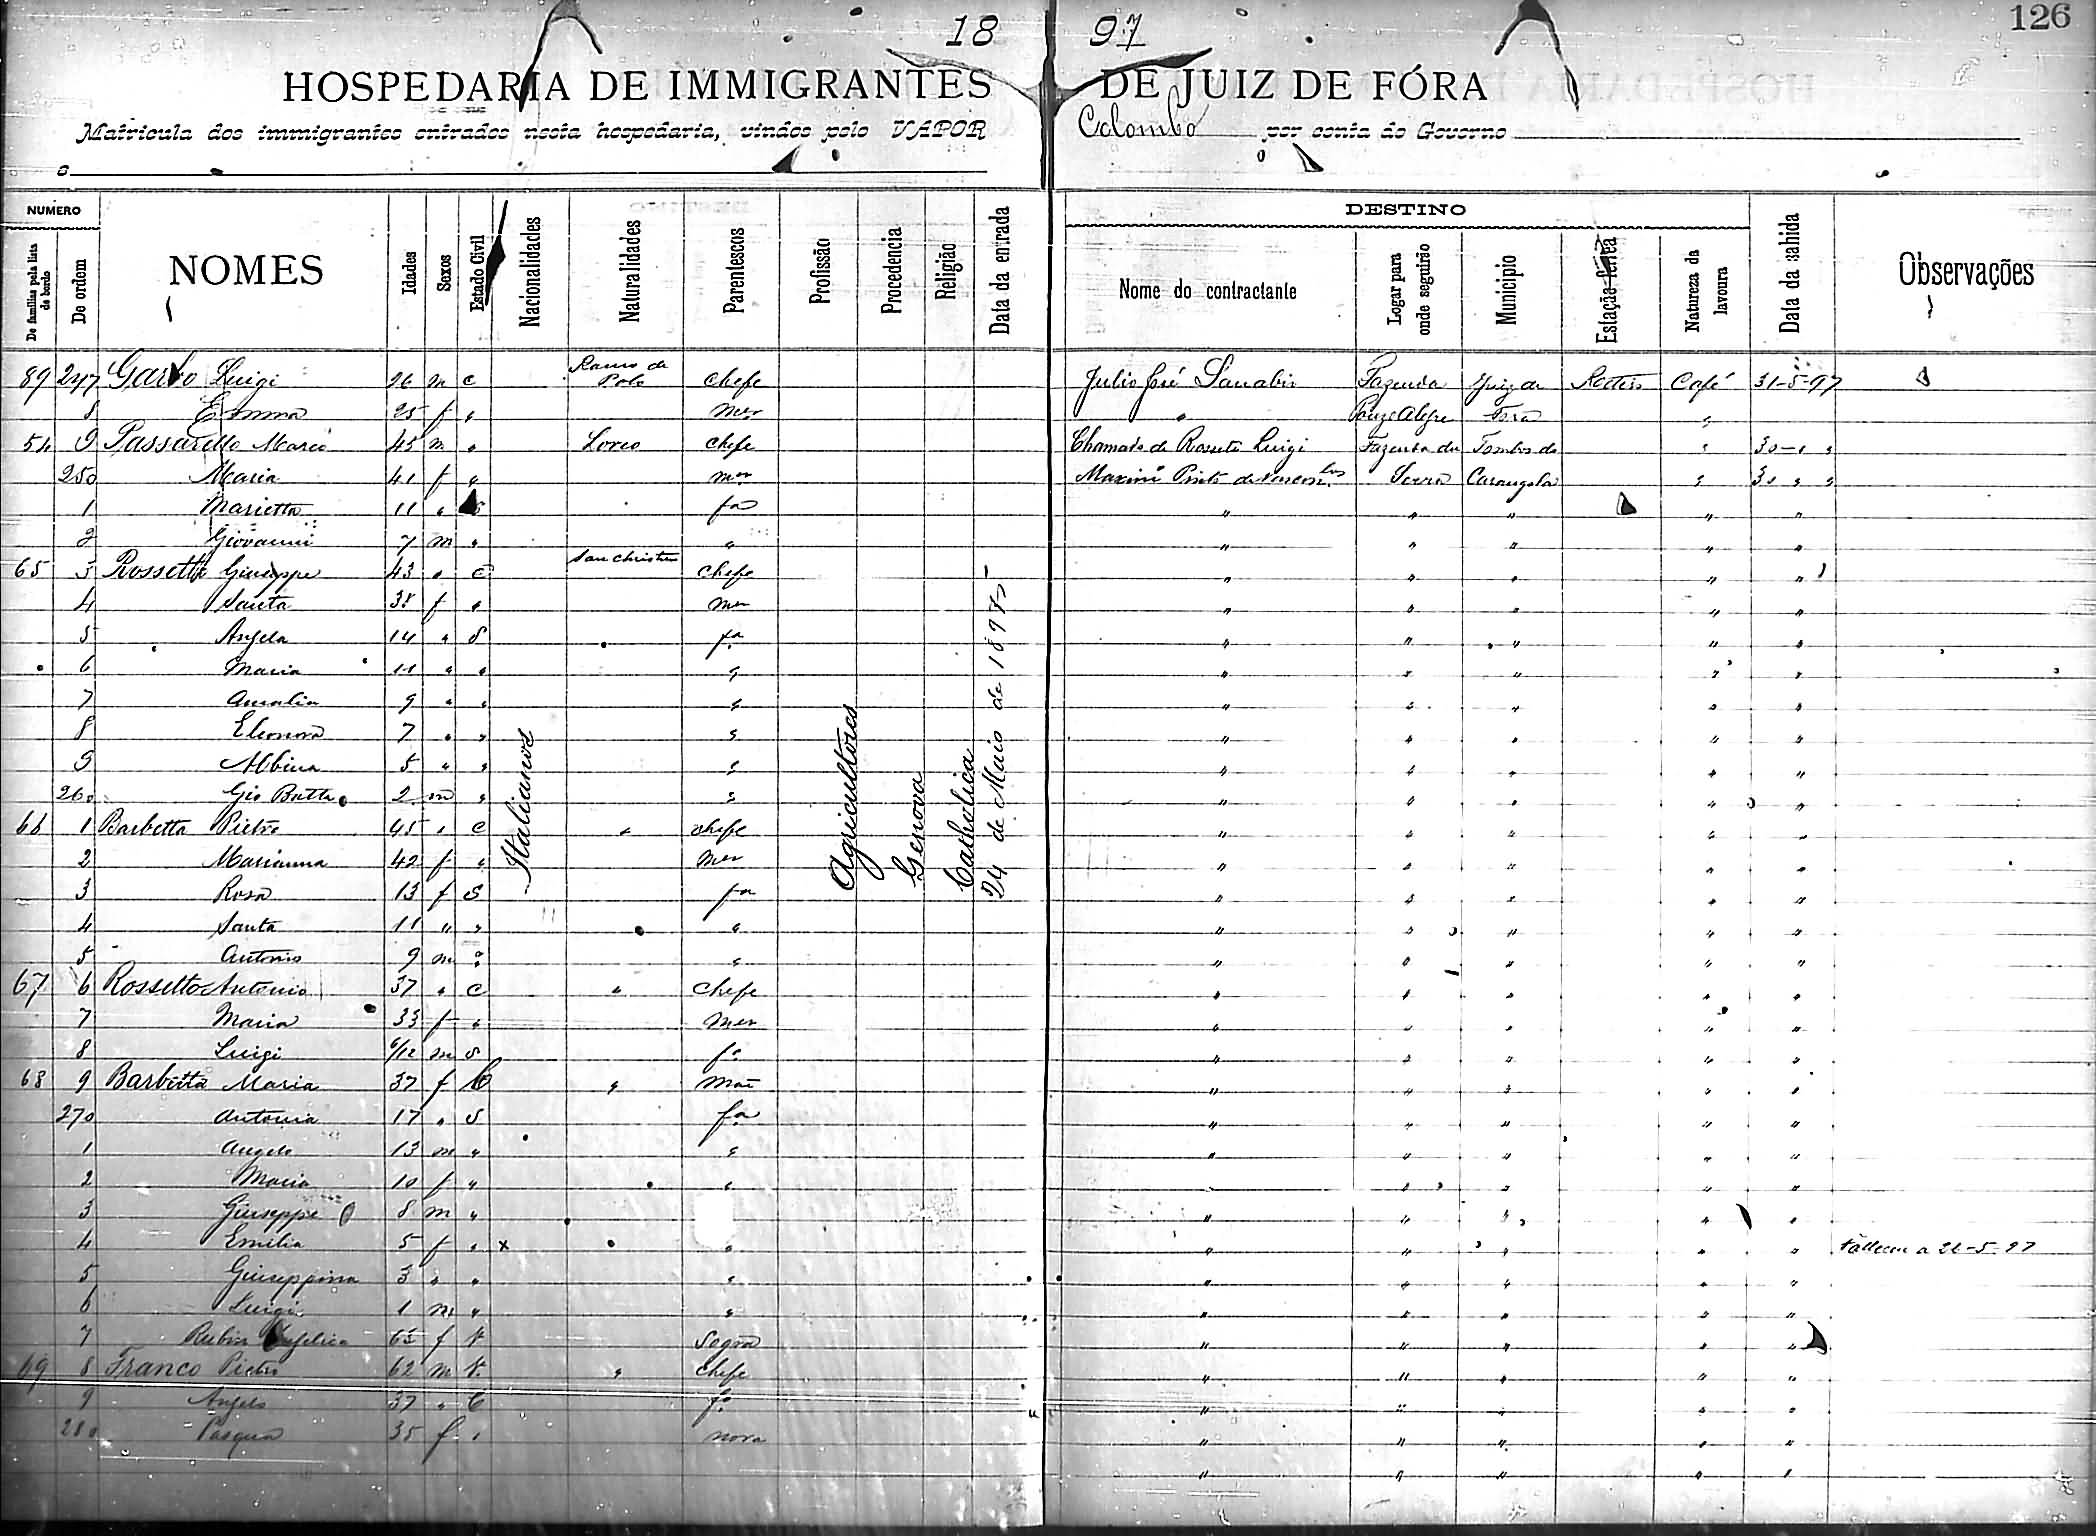 126
18 97
HOSPEDARIA DE IMMIGRANTES DE JUIZ DE FÓRA
Matricula dos immigrantes entrados nesta hospedaria, vindos pelo VAPOR Colombo por conta do Governo
o
NUMERO
DESTINO
De familias pela lista de bordo
De ordem
NOMES
Idades
Sexos
Estado Civil
Nacionalidades
Naturalidades
Parentescos
Profissão
Procedencia
Religião
Data da entrada
Nome do contractante
Logar para onde seguirão
Municipio
Estação ferrea
Natureza da lavoura
Data da sahida
Observações
Italianos
Agricultores
Genova
Catholica
24 de Maio de 1897
89 247 Luigi 26 m c Polo Chefe Julio José Fazenda Juiz de Café 31-5-97
8 Emma 25 f " mer " Alegre Fora "
54 9 Passarello Marco 45 m " Loreo Chefe Chamado de Rossetto Luigi Fazenda da Tombos do " 30 " "
250 Maria 41 f " mer Pinto de Serra Carangola " 30 " "
1 Marietta 11 " S fa " " " " "
2 Giovanni 7 m " " " " " " "
65 3 Rossetto Giuseppe 43 " C Chefe " " " " "
4 Santa 38 f " mer " " " " "
5 Angela 14 " S fa " " " " "
6 Maria 11 " " " " " " " "
7 Amalia 9 " " " " " " " "
8 Eleonora 7 " " " " " " " "
9 Albina 5 " " " " " " " "
260 Gio Batta 2 m " " " " " " "
66 1 Barbetta Pietro 45 " C " chefe " " " " "
2 Marianna 42 f " mer " " " " "
3 Rosa 13 f S fa " " " " "
4 Santa 11 " " " " " " " "
5 Antonio 9 m " " " " " " "
67 6 Rossetto Antonio 37 " C " Chefe " " " " "
7 Maria 33 f " mer " " " " "
8 Luigi 6/12 m S fo " " " " "
68 9 Barbetta Maria 37 f C " mãe " " " " "
270 Antonia 17 " S fa " " " " "
1 Angelo 13 m " " " " " " "
2 Maria 10 f " " " " " "
3 Giuseppe 8 m " " " " " "
4 Emilia 5 f " x " " " " " " Falleceu a 26-5-97
5 Giuseppina 3 " " " " " " " "
6 Luigi 1 m " " " " " " "
7 Rubin Angelica 65 f V. Sogra " " " " "
69 8 Franco Pietro 62 m V. " Chefe " " " " "
9 Angelo 37 " C fo " " " " "
280 Pasqua 35 f " nora " " " " "
" " " " "